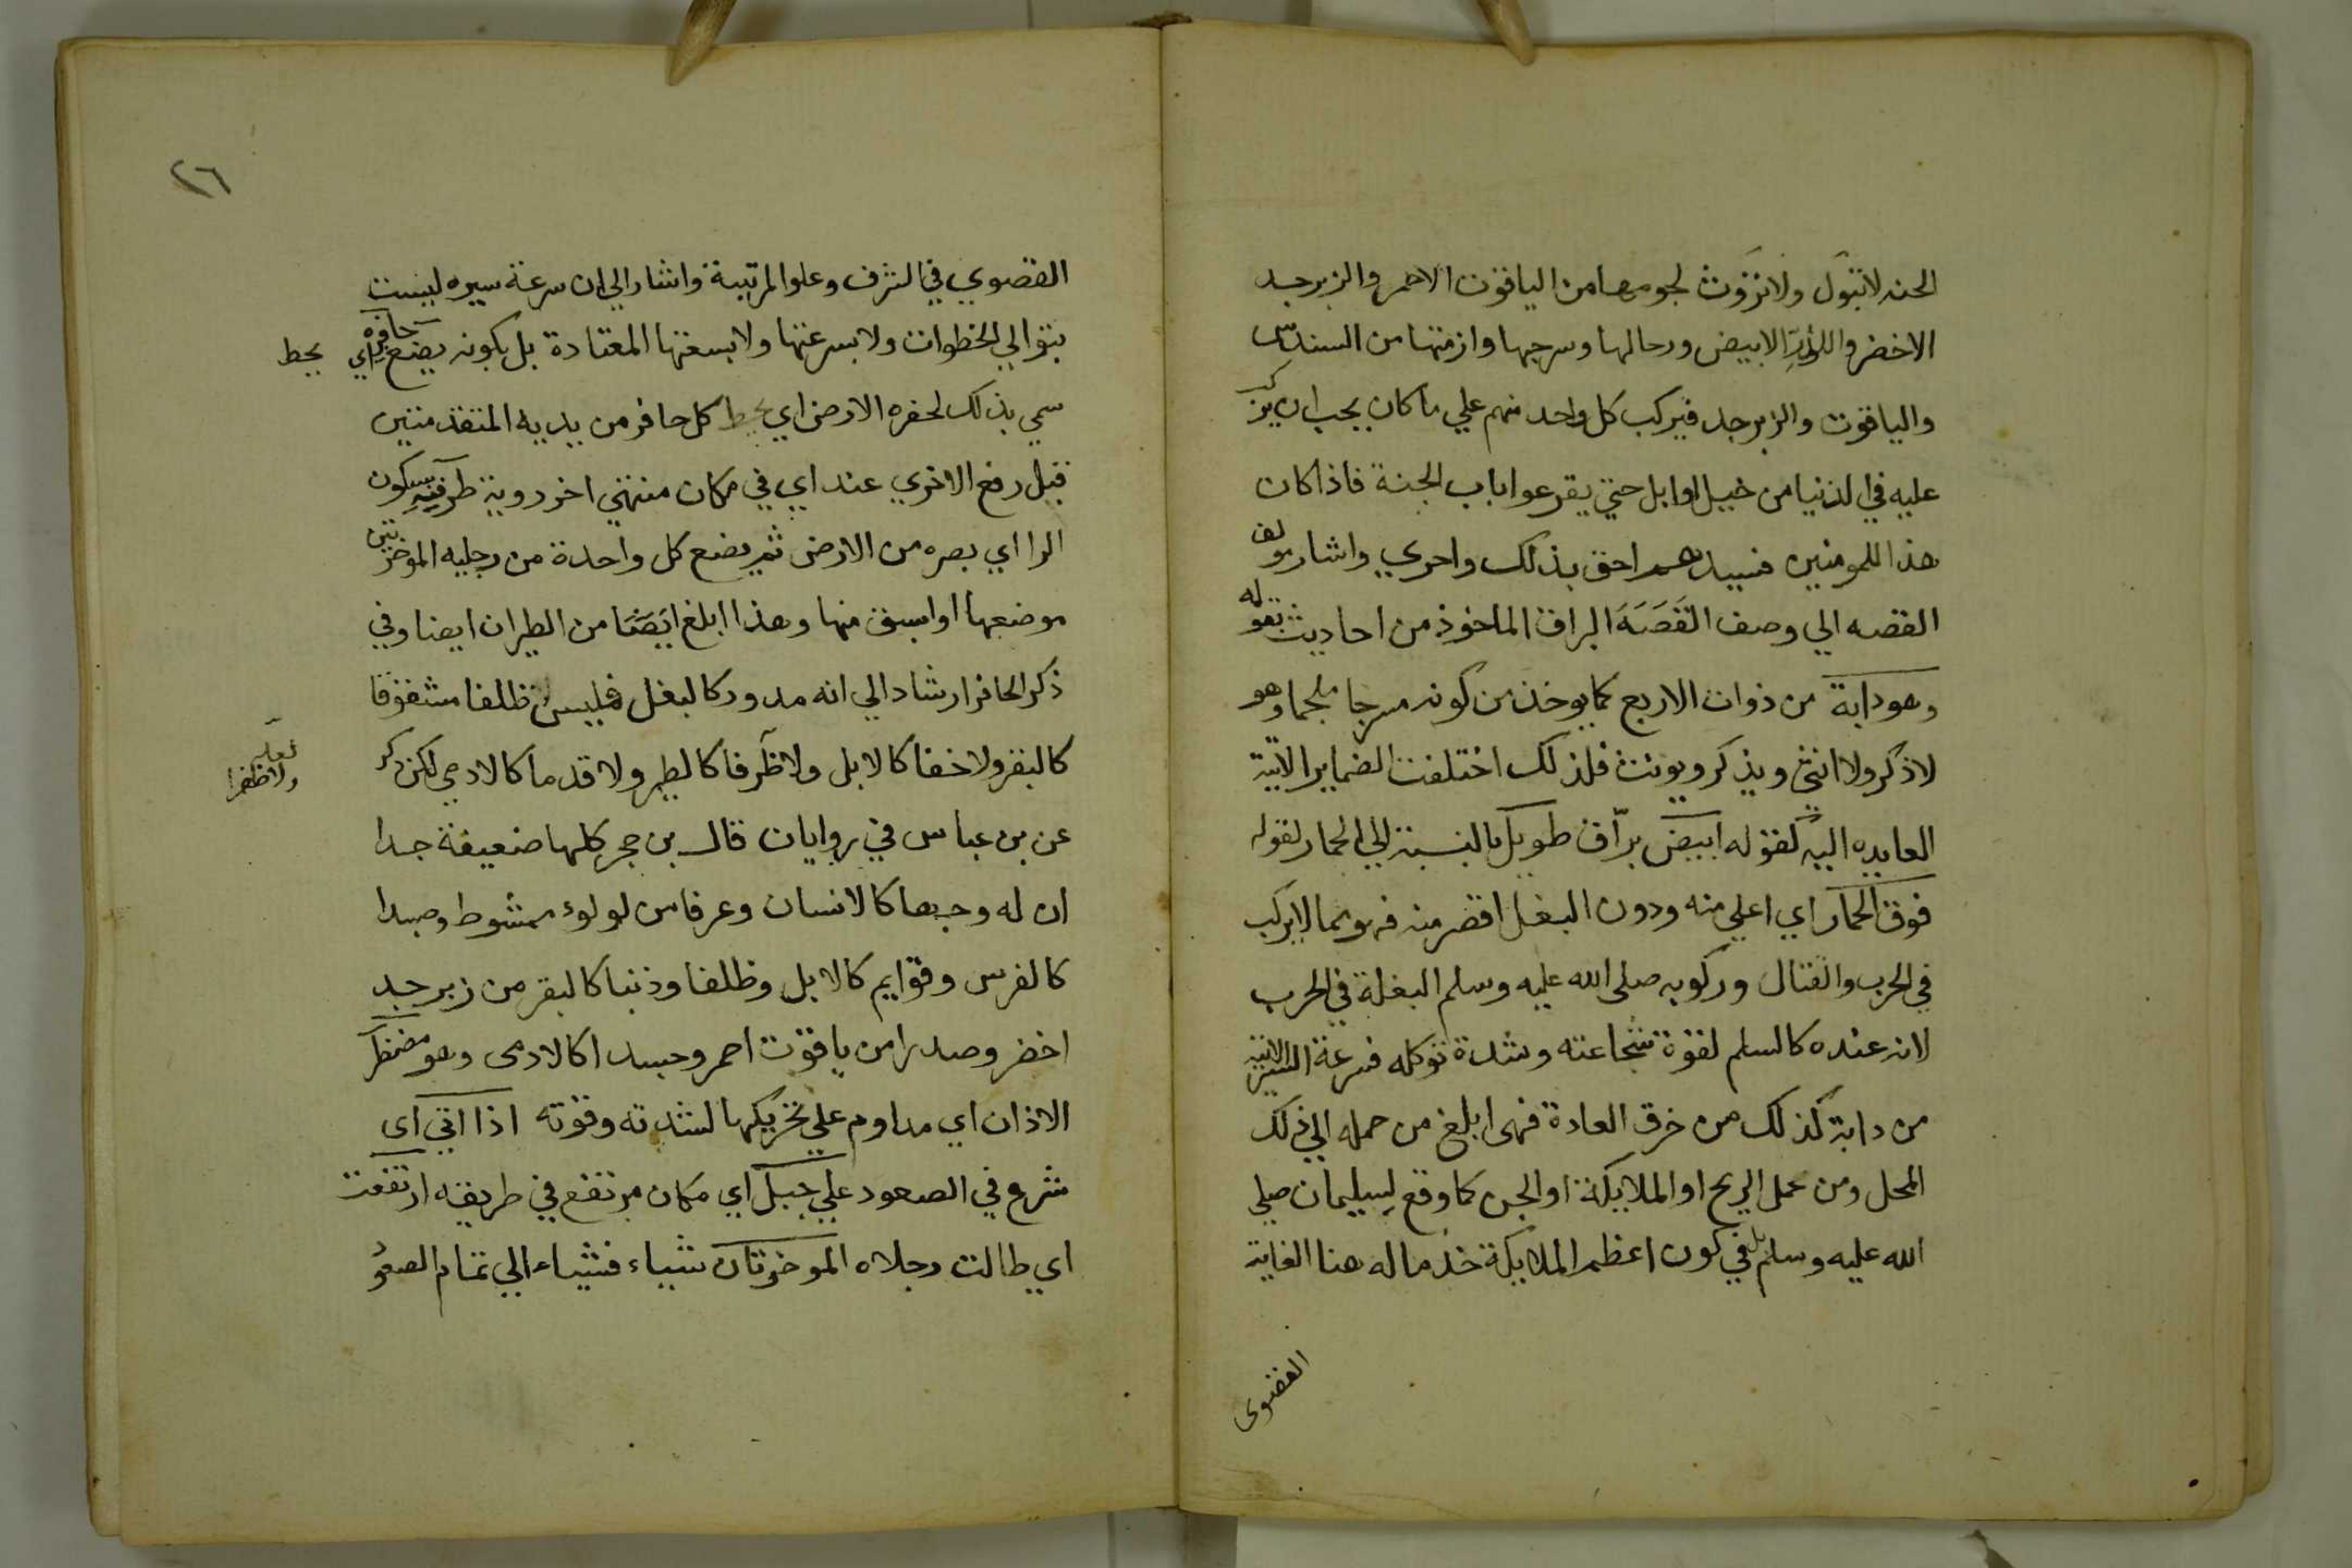 الجنه لا تبول ولا تروث لجومها من الياقوت الاحمر والزبرجد
الاخضر واللؤلؤ الابيض ورحالها وسرجها وازمتها من السندس
والياقوت والزبرجد فيركب كل واحد منهم علي ما كان يجب ان يركب
عليه في الدنيا من خيل اوابل حتي يقرعوا باب الجنة فاذا كان
هذا للمومنين فسيدهم احق بذلك واحري واشار مولف
القصه الي وصف القصة البراق الماخوذ من احاديث بقوله
وهو دابة من ذوات الاربع كما يوخذ من كونه مسرجا ملجما وهو
لا ذكر ولا انثى ويذكر ويونث فلذلك اختلفت الضماير الاتية
العايده اليه كقوله ابيض برّاق طويل بالنسبة الي الحمار لقوله
فوق الحمار اي اعلي منه ودون البغل اقصر منه فهو مما لا يركب
في الحرب والقتال وركوبه صلى الله عليه وسلم البغلة في الحرب
لانه عنده كالسلم لقوة شجاعته وشدة توكله فسرعة السير الاتية
من دابة كذلك من خرق العادة فهى ابلغ من حمله الي ذلك
المحل ومن عمل الريح او الملايكة او الجن كما وقع لسليمان صلي
الله عليه وسلم بل في كون اعظم الملايكة خدما له هنا الغاية
القصوى
٢٦
القصوي في الشرف وعلو المرتبة واشار الي ان سرعة سيره ليست
بتوالي الخطوات ولا بسرعتها ولا بسعتها المعتادة بل بكونه يضع حافره اي يحط
سمي بذلك لحفره الارض اي يحط كل حافر من يديه المتقدمتين
قبل رفع الاخري عند اي في مكان منتهي اخر روية طرفه بسكون
الرا اي بصره من الارض ثم يضع كل واحدة من رجليه الموخرتين
موضعها او اسبق منها وهذا ابلغ ايضا من الطيران ايضا وفي
ذكر الحافر ارشاد الي انه مدور كالبغل فليس ظلفا مشقوقا
كالبقر ولا خفا كالابل ولا ظرفا كالطير ولا قدما كالادمي لكن ذكر
لعله
ولا ظفرا
عن بن عباس في روايات قال بن حجر كلها ضعيفة جدا
ان له وجها كالانسان وعرفا من لولوء ممشوط وجيدا
كالفرس وقوايم كالابل وظلفا وذنبا كالبقر من زبرجد
اخضر وصدرا من ياقوت احمر وجسدا كالادمى وهو مضطر
الاذان اي مداوم علي تحريكها لشدته وقوته اذا اتي اى
شرع في الصعود علي جبل اي مكان مرتفع في طريقه ارتفعت
اي طالت رجلاه الموخرتان شياء فشياء الي تمام الصعو